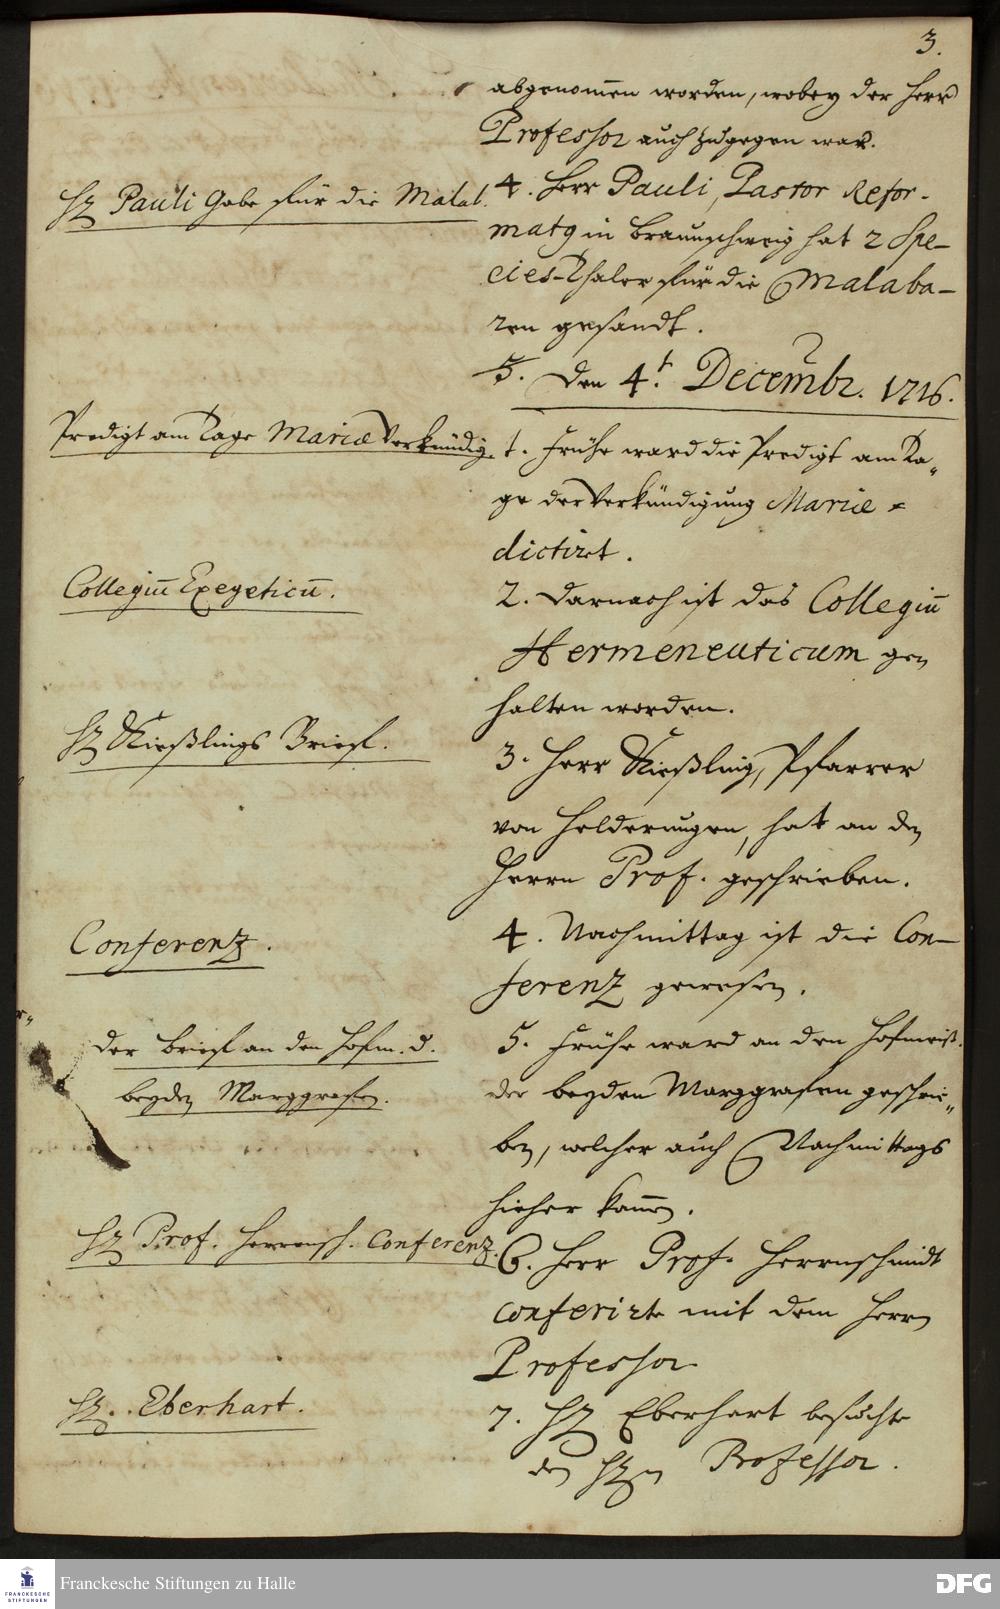 3.
abgenom̅en worden, wobey der Herr
Professor auch zugegen war.
Hr Pauli Gabe für die Malab.
4. Herr Pauli, Pastor Refor-
matg in Braunschweig hat 2 Spe-
cies-Thaler für die Malaba-
ren gesandt.
5. Den 4.t Decembr. 1716.
Predigt am Tage Mariæ Verkündig.
1. Frühe ward die Predigt am Ta-
ge der Verkündigung Mariæ
dictirt.
Collegiū Exegeticū.
2. Darnach ist das Collegiū
Hermeneuticum ge-
halten worden.
Hr Kießlings Brief.
3. Herr Kießling, Pfarrer
von Helderungen, hat an den
Herrn Prof. geschrieben.
Conferenz.
4. Nachmittag ist die Con-
ferenz gewesen.
Der Brief an den Hofm. d.
beyden Marggrafen.
5. Frühe ward an den Hofmeist.
der beyden Marggrafen geschrie-
ben, welcher auch Nachmittags
hieher kam̅.
Hr Prof. Herrnsch. Conferenz.
6. Herr Prof. Herrnschmidt
conferirte mit dem Herrn
Professor
Hr. Eberhart.
7. Hr Eberhert besuchte
den Hrn Professor.
Franckesche Stiftungen zu Halle
FRANCKESCHE
STIFTUNGEN
DFG